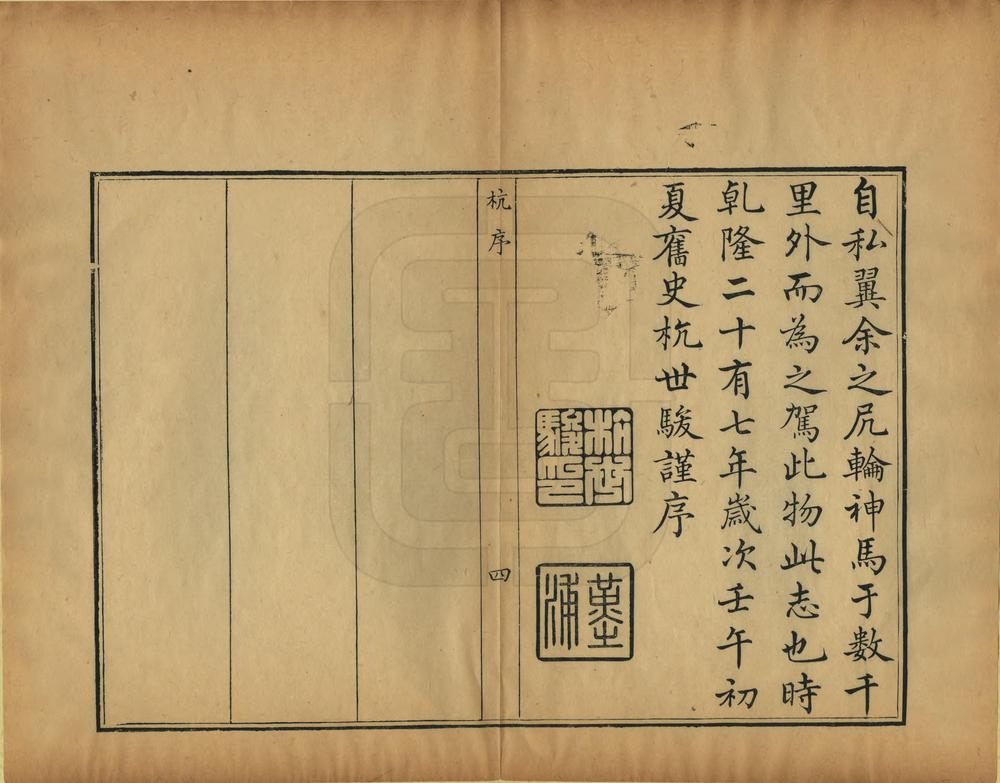 自私翼余之尻輪神馬于數千
里外而為之駕此物此志也時
乹隆二十有七年歲次壬午初
夏舊史杭世駿謹序
杭世駿印
菫浦
杭序
四